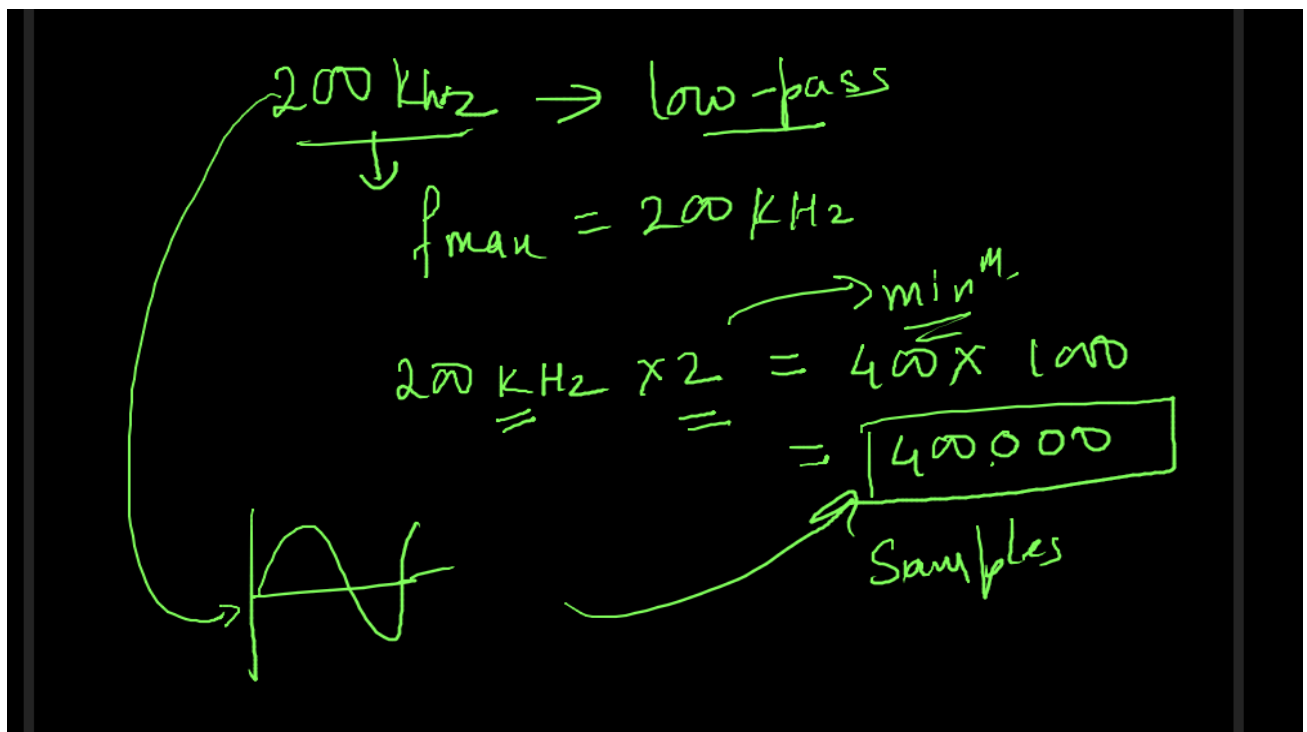 200 Khz → low-pass
fmax = 200 KHz
min^m.
200 KHz x 2 = 400 x 1000
= 400,000
Samples